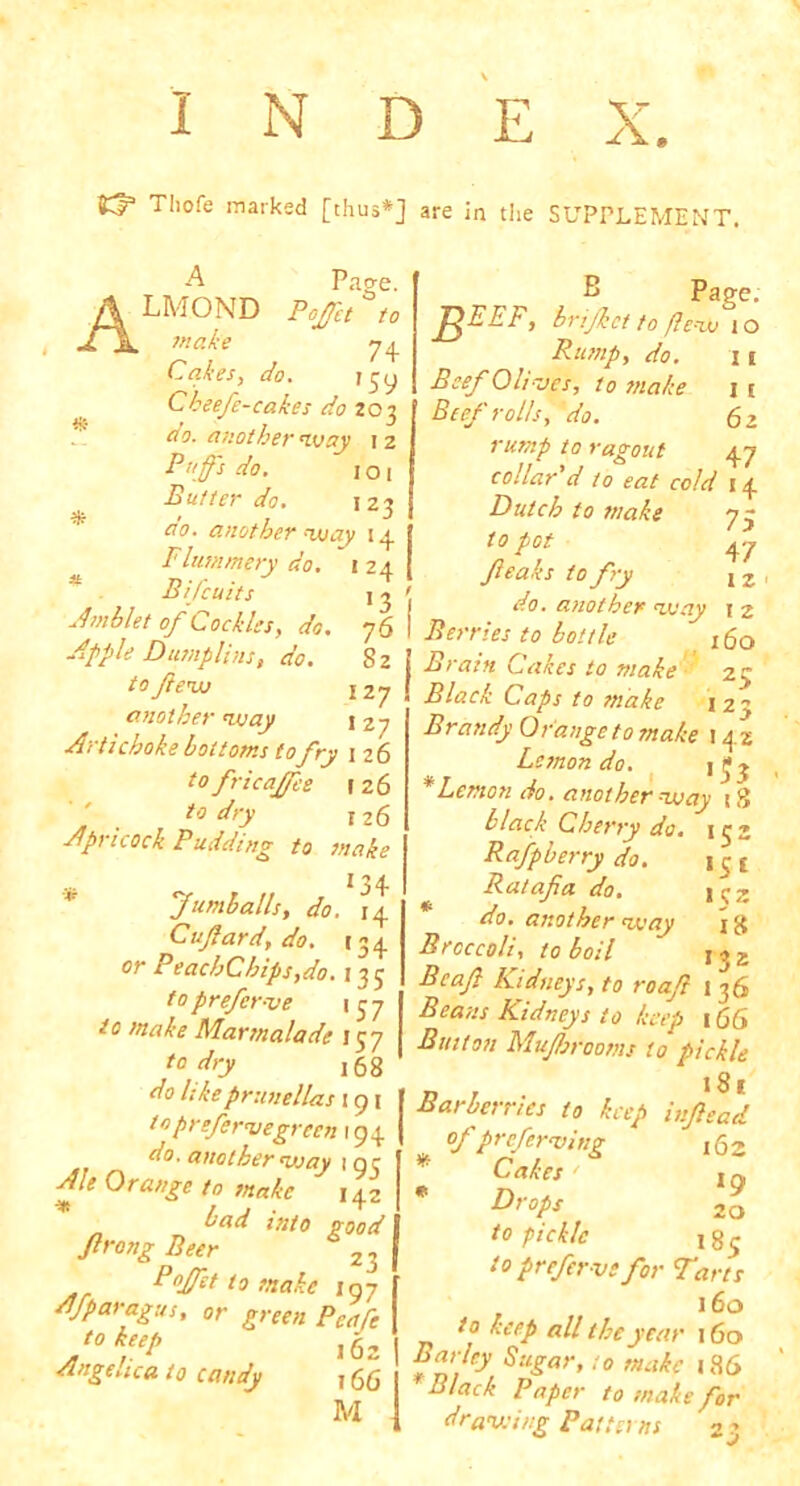 INDEX.
☞ Thoſe marked [thus*] are in the SUPPLEMENT.
A Page.
ALMOND Poſſet to
make 74
Cakes, do. 159
Cheeſe-cakes do 203
* do. another way 12
Puffs do. 101
Butter do. 123
* do. another way 14
Flummery do. 124
* Biſcuits 13
Amblet of Cockles, do. 76
Apple Dumplins, do. 82
to ſtew 127
another way 127
Artichoke bottoms to fry 126
to fricaſſee 126
to dry 126
Apricock Pudding to make
134
* Jumballs, do. 14
Cuſtard, do. 134
or PeachChips,do. 135
to preſerve 157
to make Marmalade 157
to dry 168
do like prunellas 191
to preſerve green 194
do. another way 195
Ale Orange to make 142
* bad into good
ſtrong Beer 23
Poſſet to make 197
Aſparagus, or green Peaſe
to keep 162
Angelica to candy 166
M
B Page.
BEEF, briſket to ſtew 10
Rump, do. 11
Beef Olives, to make 11
Beef rolls, do. 62
rump to ragout 47
collar'd to eat cold 14
Dutch to make 75
to pot 47
ſteaks to fry 12
do. another way 12
Berries to bottle 160
Brain Cakes to make 25
Black Caps to make 123
Brandy Orange to make 142
Lemon do. 153
*Lemon do. another way 18
black Cherry do. 152
Raſpberry do. 151
Ratafia do. 152
* do. another way 18
Broccoli, to boil 132
Beaſt Kidneys, to roaſt 136
Beans Kidneys to keep 166
Button Muſhrooms to pickle
181
Barberries to keep inſtead
of preſerving 162
* Cakes 19
* Drops 20
to pickle 185
to preſerve for Tarts
160
to keep all the year 160
Barley Sugar, to make 186
*Black Paper to make for
drawing Patterns 23